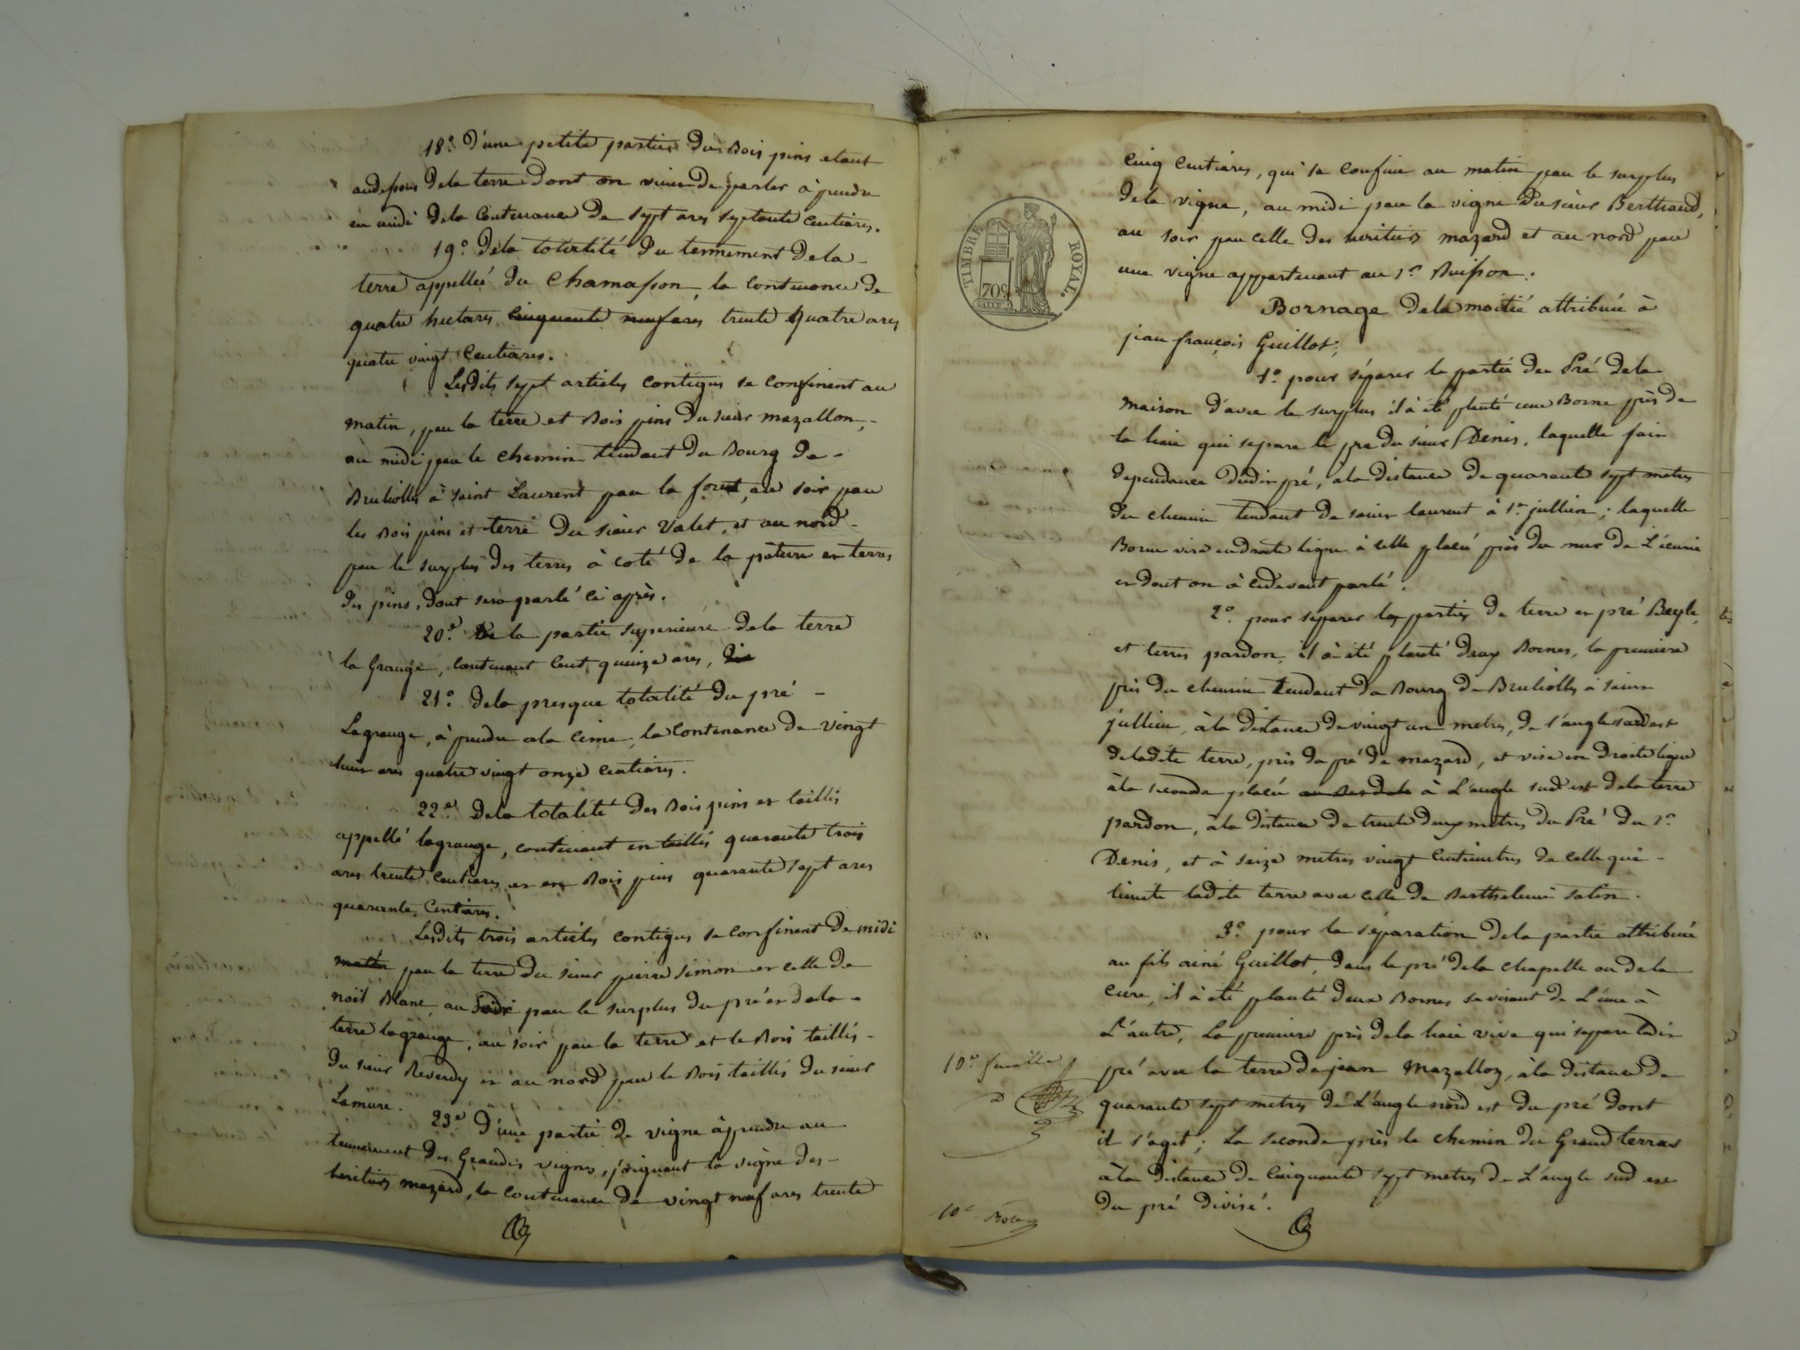 18.° D'une petite partie du Bois pins etant
audessous dela terre dont on vient de parler à prendre
en midi dela Contenance de sept ares septante Centiares.
19.° dela totalité du tennement dela
terre appellée du Chamasson, la contenance de
quatre hectares cinquante neuf ares trente quatre ares
quatre vingt Centiares.
Lesdits sept articles contigus se confinent au
matin, par la terre et Bois pins du sieur mazallon,
au midi par le chemin tendant du Bourg de
Brulioles à saint Laurent par la foret, au soir par
les Bois pins et terre du sieur Valet, et au nord
par le surplus des terres à coté de la pâture et terres
des pins, dont sera parlé ci après.
20.° De la partie superieure dela terre
la Grange, contenant cent quinze ares,
21.° dela presque totalité du pré
Lagrange, à prendre ala cime, la contenance de vingt
huit ares quatre vingt onze centiares.
22.° Dela totalité des Bois pins et taillis
appellé lagrange, contenant en taillis quarante trois
ares trente centiares et en Bois pins quarante sept ares
quarante Centiares.
Lesdits trois articles contigus se confinent de midi
matin par la terre du sieur pierre simon et celle de
noël Blanc, au par le surplus du pré et dela
terre lagrange, au soir par la terre et le Bois taillis
du sieur Reverdy et au nord par le Bois taillis du sieur
Lamure.
23.° D'une partie de vigne à prendre au
tennement des Grandes vignes, joignant la vigne des
heritiers mazard, la contenance de vingt neuf ares trente
TIMBRE ROYAL.
70c
cinq Centiares, qui se confine au matin par le surplus
dela vigne, au midi par la vigne du sieur Berthaud,
au soir par celle des heritiers mazard et au nord par
une vigne appartenant au sr. Buisson.
Bornage dela moitié attribuée à
jean françois Guillot;
1.° pour séparer la partie du Pré dela
maison d'avec le surplus il à été planté une Borne près de
la haie qui separe le pre du sieur Denis, laquelle fait
dependance dudit pré, à la distance de quarante sept metres
du chemin tendant de saint laurent à st. jullien; laquelle
Borne vise en droite ligne à celle placée près du mur de L'écurie
et dont on à cidevant parlé.
2.° pour séparer les parties de terre et pré Bayle,
et terres pardon, il à été planté deux Bornes, la premiere
près du chemin tendant du Bourg de Brulioles à saint
jullien, à la distance de vingt un metres, de l'angle
deladite terre, près du pré de mazard, et vise en droite ligne
à la seconde placée à L'angle sud est dela terre
pardon, à la distance de trente deux metres du Pré du sr.
Denis, et à seize metres vingt Centimetres de celle qui
limite ladite terre avec celle de Barthelemi
3.° pour la séparation dela partie attribuée
au fils ainé Guillot, dans le pré dela chapelle ou dela
cure, il à été planté deux Bornes se visant de L'une à
L'autre, La premiere près dela haie vive qui separe ledit
10.e feuillet
pré avec la terre de jean Mazalloz, à la distance de
quarante sept metres de L'angle nord est du pré dont
il s'agit; La seconde près le chemin du Grand terras
à la distance de cinquante sept metres de L'angle sud est
du pré divisé.
10.e Role